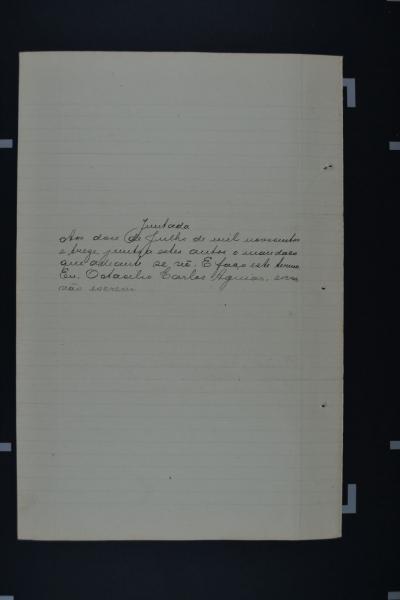 Juntada
Aos doze de Julho de mil novecentos
e treze junto a estes autos o mandado
que adiante se vê. E faço este termo.
Eu, Octacilio Carlos Aguiar, escri
vão escrevi